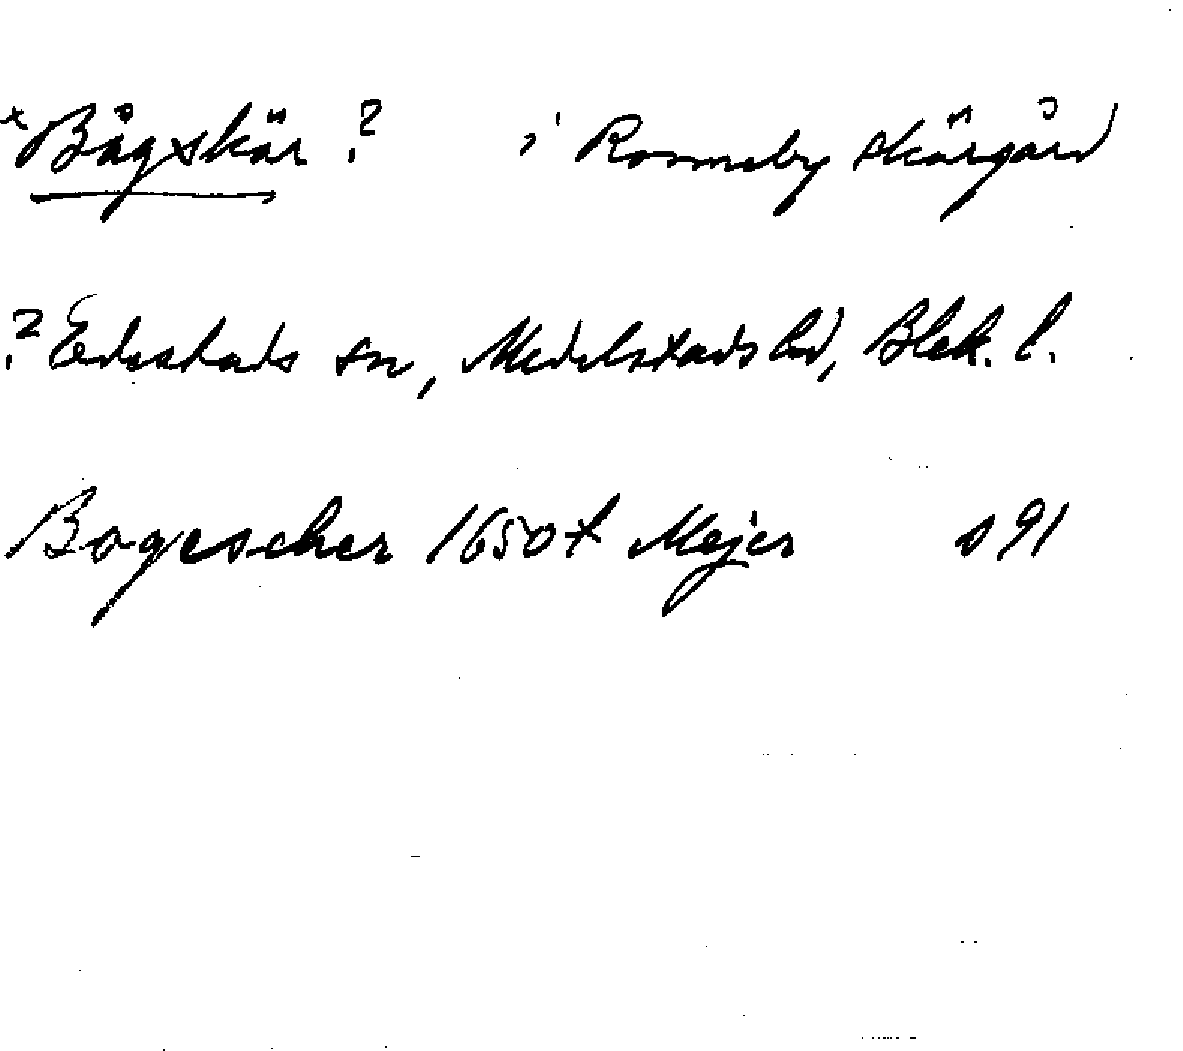 *Bågskär ? i Ronneby skärgård
? Edestads sn, Medelstads hd, Blek. l.
Bogescher 1650t Mejer s 91